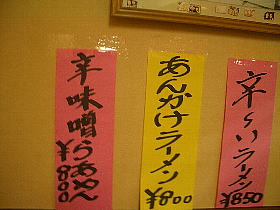 辛〜いラーメン
¥850
あんかけラーメン
¥800
辛味噌らあめん
¥800